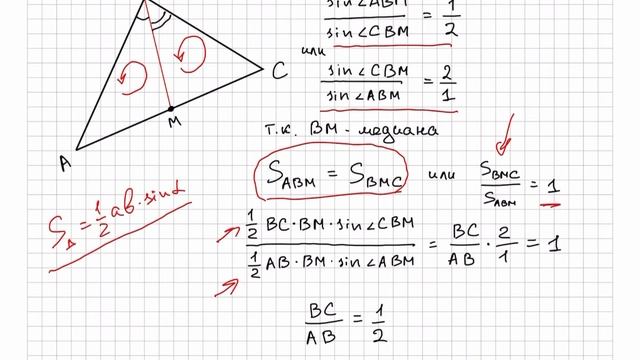 sin∠ABM / sin∠CBM = 1/2
или
sin∠CBM / sin∠ABM = 2/1
C
M
A
т.к. BM - медиана
S_ABM = S_BMC или S_BMC / S_ABM = 1
S_Δ = 1/2 ab·sinα
1/2 BC·BM·sin∠CBM / 1/2 AB·BM·sin∠ABM = BC/AB · 2/1 = 1
BC/AB = 1/2